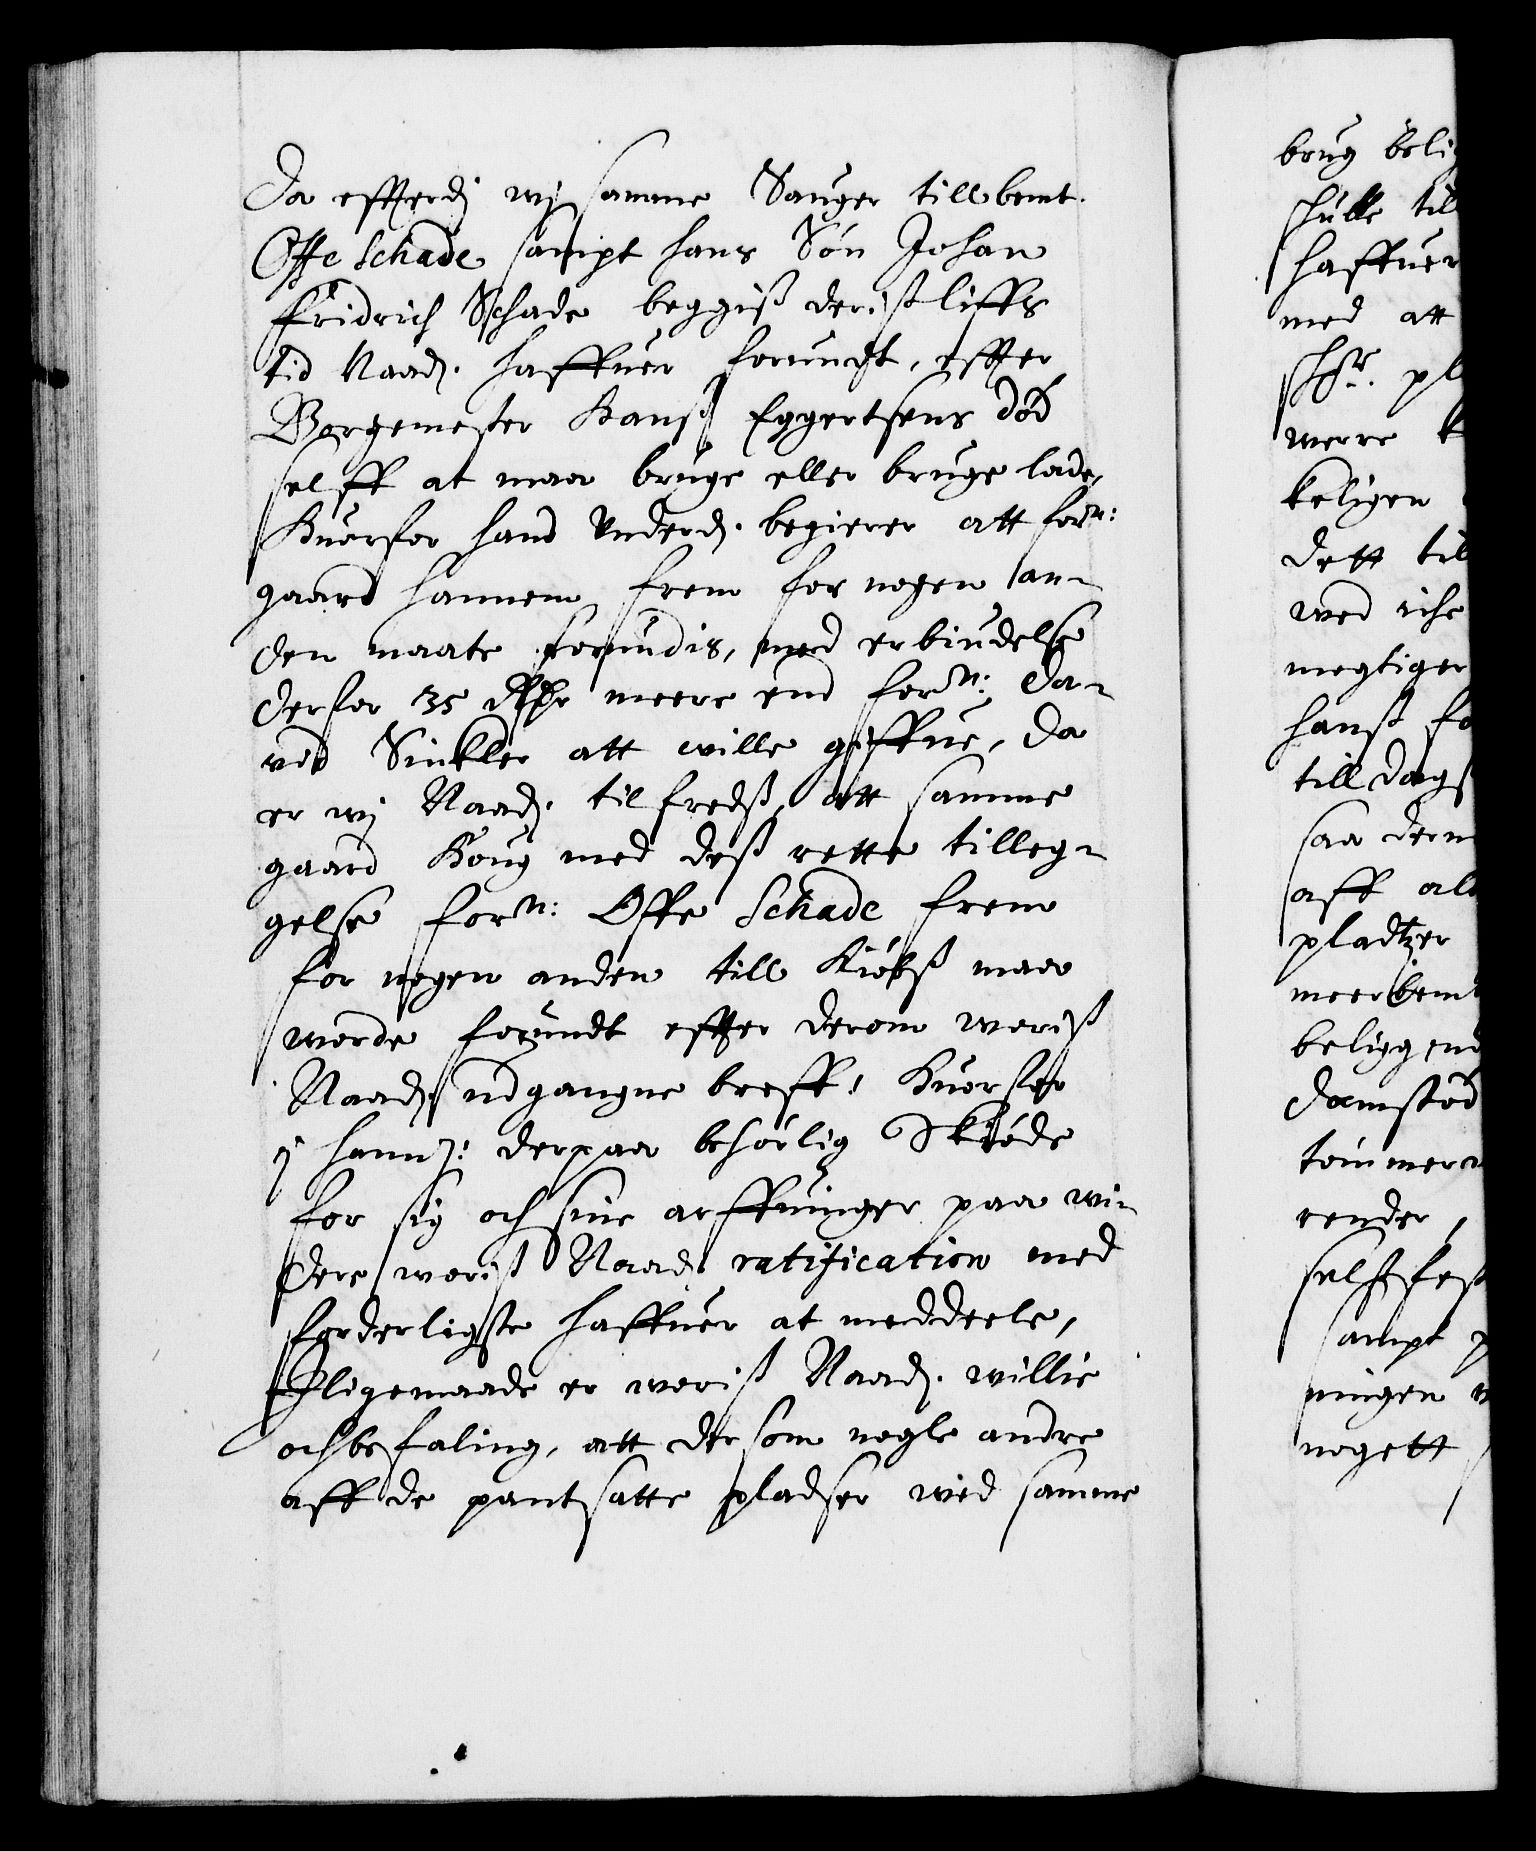 Da effterdj wj samme Sauger till bemt.
Offe Schade sampt hans Sön Johan
Fridrich Schade beggiß deriß liffs
tid Naad. haffuer forundt, effter
Borgemester Hanß Eggertsens död
selff at maa bruge eller bruge lade,
Huorfor hand Underd. begierer att forn:
gaard hannem frem for nogen an-
den maate forundis, med erbiudelse
derfor 35 Rdlr meere end forn: Da-
vid Sinkler att wille giffue, Da
er wj Naad. tilfredß, att samme
gaard Houg med deß rette tilleg-
gelse forn: Offe Schade frem
for nogen anden till Kiöbß maa
worde forundt effter derom woriß
Naad. udgangne breff, Huorfor
j hannem: derpaa behörlig Skiöde
for sig och sine arffuinger paa wi-
dere woriß Naad. ratification med
forderligste haffuer at meddeele,
Iligemaade er woriß Naad. willie
och befaling, att dersom nogle andre
aff de pantsatte pladser wid samme
brug beli
skulle til
haffuer
med att
pl
werre
keligen
dett til
wed
megtiger
hanß fo
till dags
saa derm
aff al
pladtzer
meerbemt
beliggend
Damsted
tömmer
render,
selff fest
sampt
ningen
nogett